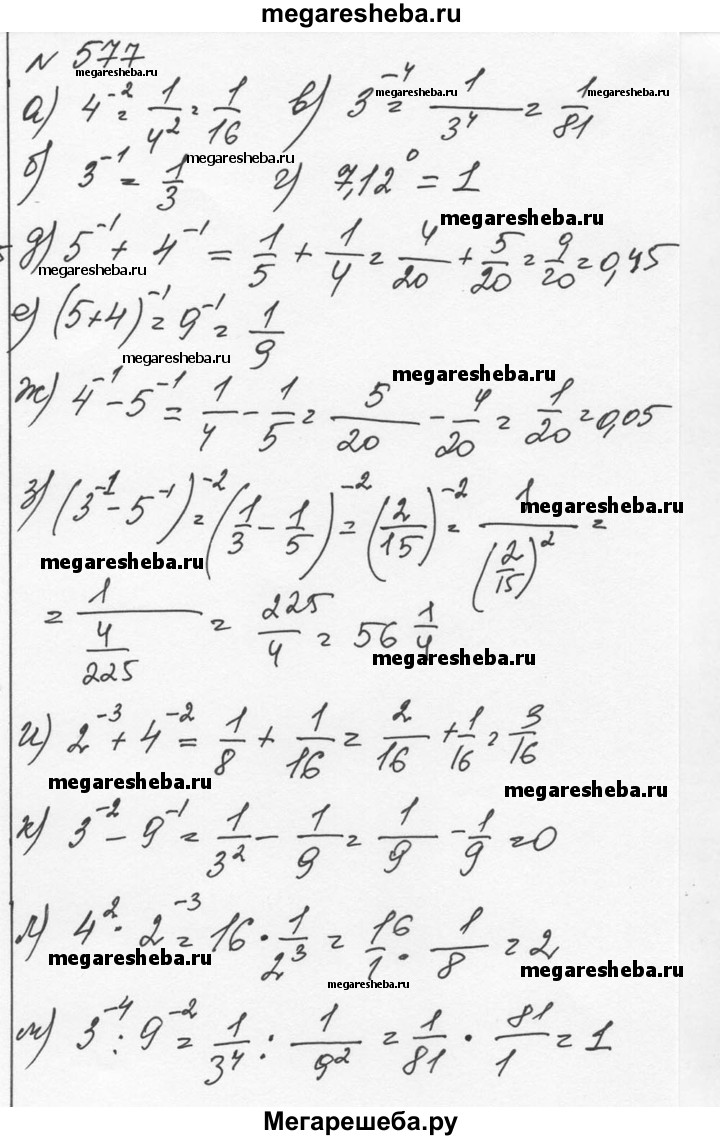 megaresheba.ru
№ 577
megaresheba.ru
а) 4⁻² = 1/4² = 1/16 в) 3⁻⁴ = 1/3⁴ = 1/81
megaresheba.ru megaresheba.ru megaresheba.ru
б) 3⁻¹ = 1/3 г) 7,12⁰ = 1
megaresheba.ru
megaresheba.ru
д) 5⁻¹ + 4⁻¹ = 1/5 + 1/4 = 4/20 + 5/20 = 9/20 = 0,45
megaresheba.ru
е) (5+4)⁻¹ = 9⁻¹ = 1/9
megaresheba.ru
megaresheba.ru
ж) 4⁻¹ - 5⁻¹ = 1/4 - 1/5 = 5/20 - 4/20 = 1/20 = 0,05
з) (3⁻¹ - 5⁻¹)⁻² = (1/3 - 1/5)⁻² = (2/15)⁻² = 1/(2/15)² =
megaresheba.ru
megaresheba.ru
= 1/(4/225) = 225/4 = 56 1/4
megaresheba.ru
и) 2⁻³ + 4⁻² = 1/8 + 1/16 = 2/16 + 1/16 = 3/16
megaresheba.ru megaresheba.ru
к) 3⁻² - 9⁻¹ = 1/3² - 1/9 = 1/9 - 1/9 = 0
л) 4² · 2⁻³ = 16 · 1/2³ = 16/1 · 1/8 = 2
megaresheba.ru megaresheba.ru
megaresheba.ru
м) 3⁻⁴ : 9⁻² = 1/3⁴ : 1/9² = 1/81 · 81/1 = 1
Мегарешеба.ру